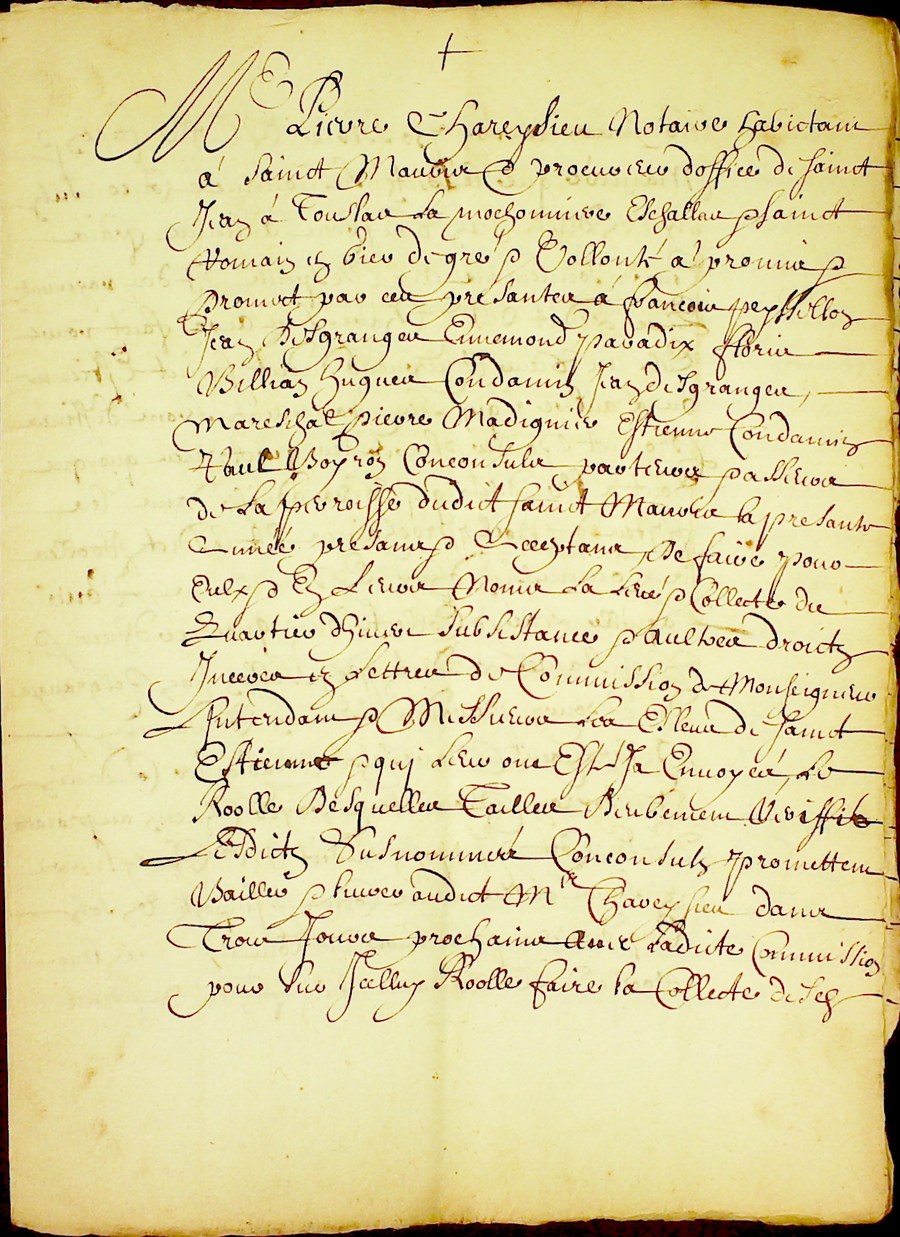 +
Me Pierre Chareysieu Notaire habictant
á Sainct Mauris & procureur doffice de Sainct
Jean á Touslas La mochonniere Eschallas & sainct
Romain en Gier de gré & Vollonté a promis &
promect par ces presantes á francois peyssellon
Jean Desgranges Ennemond paradix floris
Billian hugues Condamin Jean desgranges,
mareschal pierre Madignier Estienne Condamin
& paul Boyron Conconsulz parties passees
de La perroisse dudict sainct Mauris la presante
Année presans & Acceptans De faire pour
Eulx & En Leurs Noms La Leué & Collecte du
Quartier dhiuer Subsistance & aultres droictz
Jncerés en Lettres de Commission de Monseigneur
Lintendant & Messieurs Les Esleus de sainct
Estienne & quj Leur ont Esté Ja Enuoyés, Le
Roolle Desquelles Tailles Deubement Veriffié
Lesdictz Susnommés Conconsulz promettent
Bailler & liurer audict Me Chareysieu dans
Trois Jours prochains Auec Ladicte Commission
pour Sur Jcelluy Roolle faire la Collecte desd